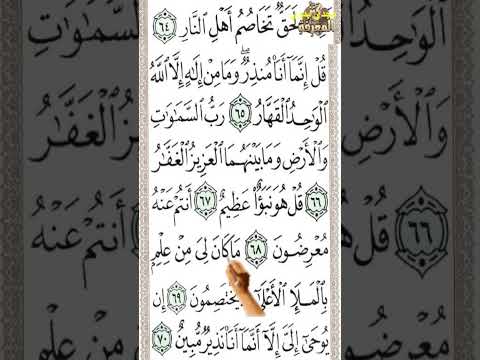 المعرفة
لَحَقٌّ تَخَاصُمُ أَهْلِ ٱلنَّارِ ٦٤
قُلْ إِنَّمَآ أَنَا۠ مُنذِرٌ ۖ وَمَا مِنْ إِلَٰهٍ إِلَّا ٱللَّهُ
ٱلْوَٰحِدُ ٱلْقَهَّارُ ٦٥ رَبُّ ٱلسَّمَٰوَٰتِ
وَٱلْأَرْضِ وَمَا بَيْنَهُمَا ٱلْعَزِيزُ ٱلْغَفَّٰرُ
٦٦ قُلْ هُوَ نَبَؤٌا۟ عَظِيمٌ ٦٧ أَنتُمْ عَنْهُ
مُعْرِضُونَ ٦٨ مَا كَانَ لِىَ مِنْ عِلْمٍۭ
بِٱلْمَلَإِ ٱلْأَعْلَىٰٓ يَخْتَصِمُونَ ٦٩ إِن
يُوحَىٰٓ إِلَىَّ إِلَّآ أَنَّمَآ أَنَا۠ نَذِيرٌ مُّبِينٌ ٧٠